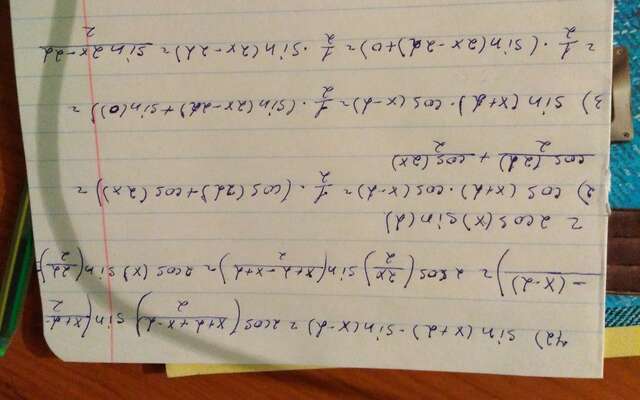 42) sin(x+α) - sin(x-α) = 2cos((x+α+x-α)/2) sin((x+α-/2
-(x-α)/) = 2cos(2x/2) sin((x+α-x+α)/2) = 2cos(x) sin(2α/2) =
= 2cos(x) sin(α)
2) cos(x+α)·cos(x-α) = 1/2 · (cos(2α)+cos(2x)) =
cos(2α)/2 + cos(2x)/2
3) sin(x+α)·cos(x-α) = 1/2 · (sin(2x-2α)+sin(0)) =
= 1/2 · (sin(2x-2α)+0) = 1/2 · sin(2x-2α) = sin2x-2α/2